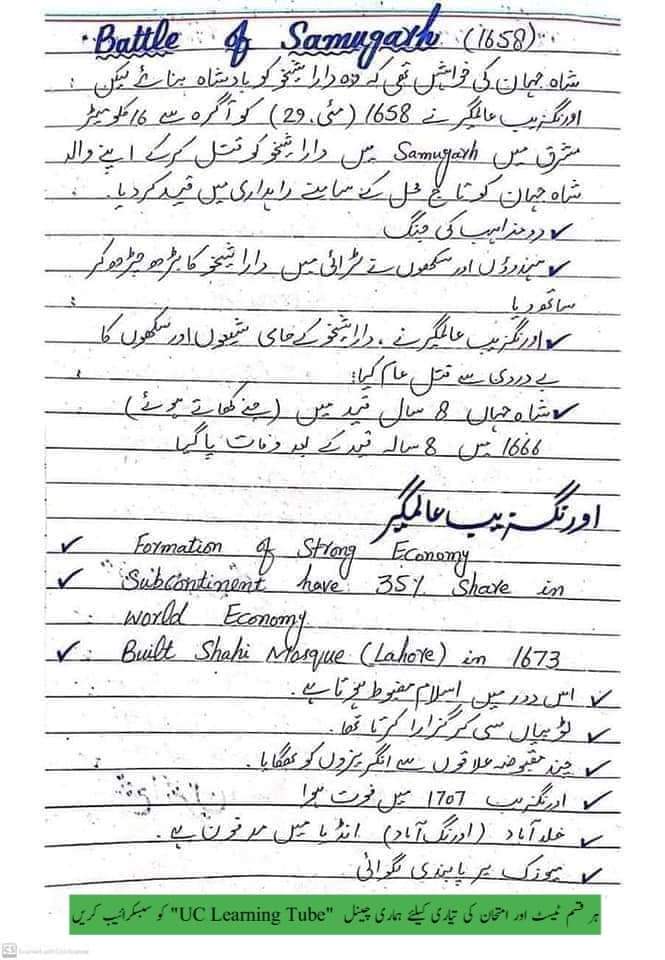 Battle of Samugarh (1658)
شاہ جہان کی خواہش تھی کہ وہ دارا شیخو کو بادشاہ بنائے لیکن :
اورنگزیب عالمگیر نے 1658 (مئی، 29) کو آگرہ سے 16 کلومیٹر
مشرق میں Samugarh میں دارا شیخو کو قتل کرکے اپنے والد
شاہ جہان کو تاج محل کے سامنے راہداری میں قید کر دیا۔
✓ دو مذاہب کی جنگ
✓ ہندوؤں اور سکھوں نے لڑائی میں دارا شیخو کا بڑھ چڑھ کر
ساتھ دیا
✓ اورنگزیب عالمگیر نے، دارا شیخو کے حامی شیعوں اور سکھوں کا
بے دردی سے قتل عام کیا:
✓ شاہ جہاں 8 سال قید میں (چنے کھاتے ہوئے)
1666 میں 8 سالہ قید کے بعد وفات پا گیا
اورنگزیب عالمگیر
✓ Formation of Strong Economy
✓ Subcontinent have 35% Share in
World Economy
✓ Built Shahi Mosque (Lahore) in 1673
✓ اس دور میں اسلام مضبوط ہوتا ہے۔
✓ ٹوپیاں سی کر گزارا کرتا تھا۔
✓ چند مقبوضہ علاقوں سے انگریزوں کو بھگایا۔
✓ اورنگزیب 1707 میں فوت ہوا
✓ خلد آباد (اورنگ آباد) انڈیا میں مدفون ہے۔
✓ میوزک پر پابندی لگوائی
ہر قسم ٹیسٹ اور امتحان کی تیاری کیلئے ہماری چینل "UC Learning Tube" کو سبسکرائیب کریں
CS Scanned with CamScanner